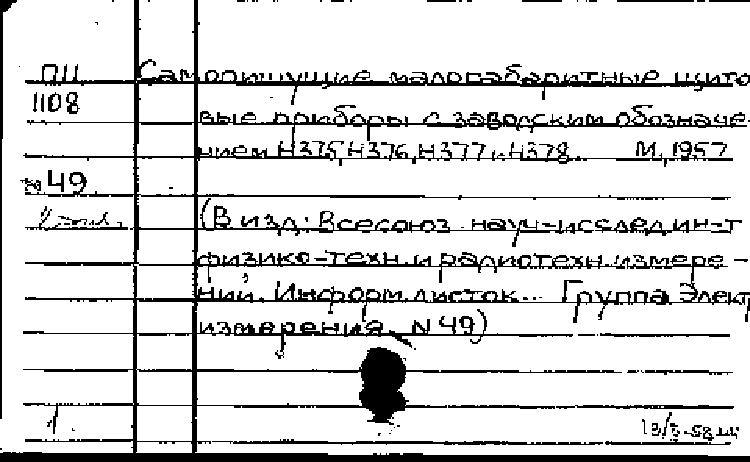 ПИ Самопишущие малогабаритные щито
1108
вые приборы с заводским обозначе-
нием Н375, Н376, Н377 и Н378. М, 1957
№49
(В изд: Всесоюз науч-исслед ин-т
физико-техн. и радиотехн. измере-
ний. Информ. листок... Группа Элект
измерения N 49)
1.